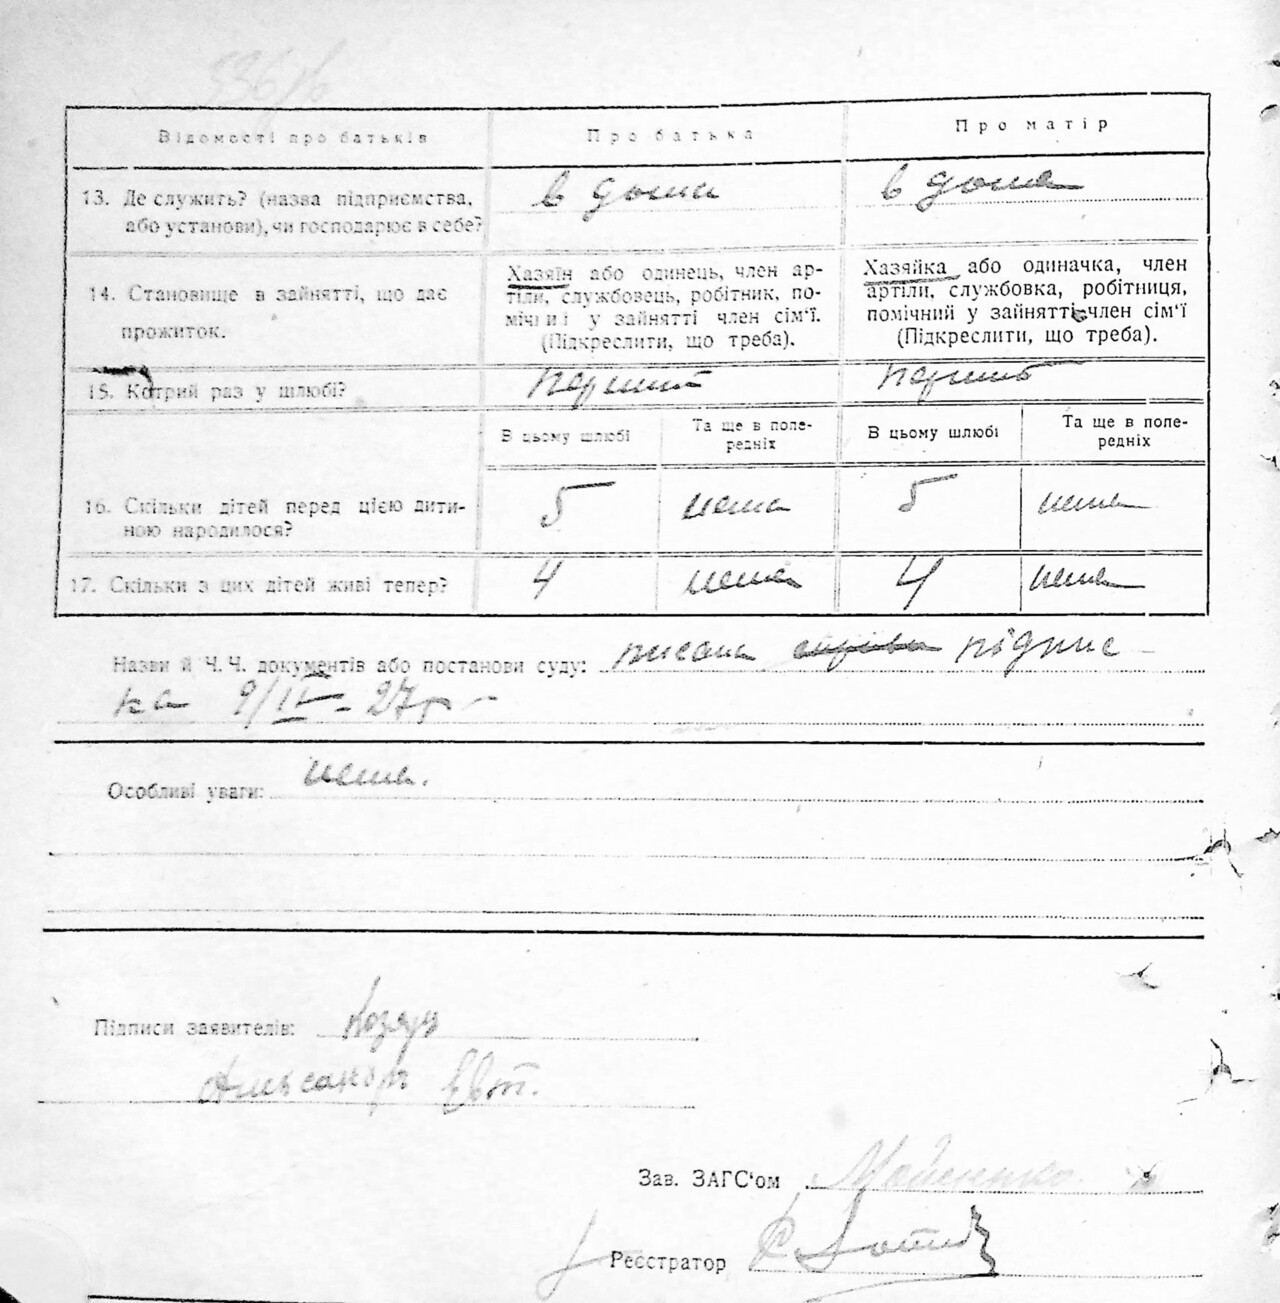 336/в
Відомості про батьків Про батька Про матір
13. Де служить? (назва підприємства, в дома в дома
або установи), чи господарює в себе?
14. Становище в зайнятті, що дає прожиток.
Хазяїн або одинець, член ар-
тіли, службовець, робітник, по-
мічний у зайнятті член сім'ї.
(Підкреслити, що треба).
Хазяйка або одиначка, член
артіли, службовка, робітниця,
помічний у зайнятті член сім'ї
(Підкреслити, що треба).
15. Котрий раз у шлюбі? перший перший
В цьому шлюбі Та ще в попе-
редніх В цьому шлюбі Та ще в попе-
редніх
16. Скільки дітей перед цією дити- 5 нема 5 нема
ною народилося?
17. Скільки з цих дітей живі тепер? 4 нема 4 нема
Назви й Ч. Ч. документів або постанови суду: підпис
ка 9/IV - 27р -
Особливі уваги: нема.
Підписи заявителів: Козяр
Александр Евт.
Зав. ЗАГС'ом
Реєстратор